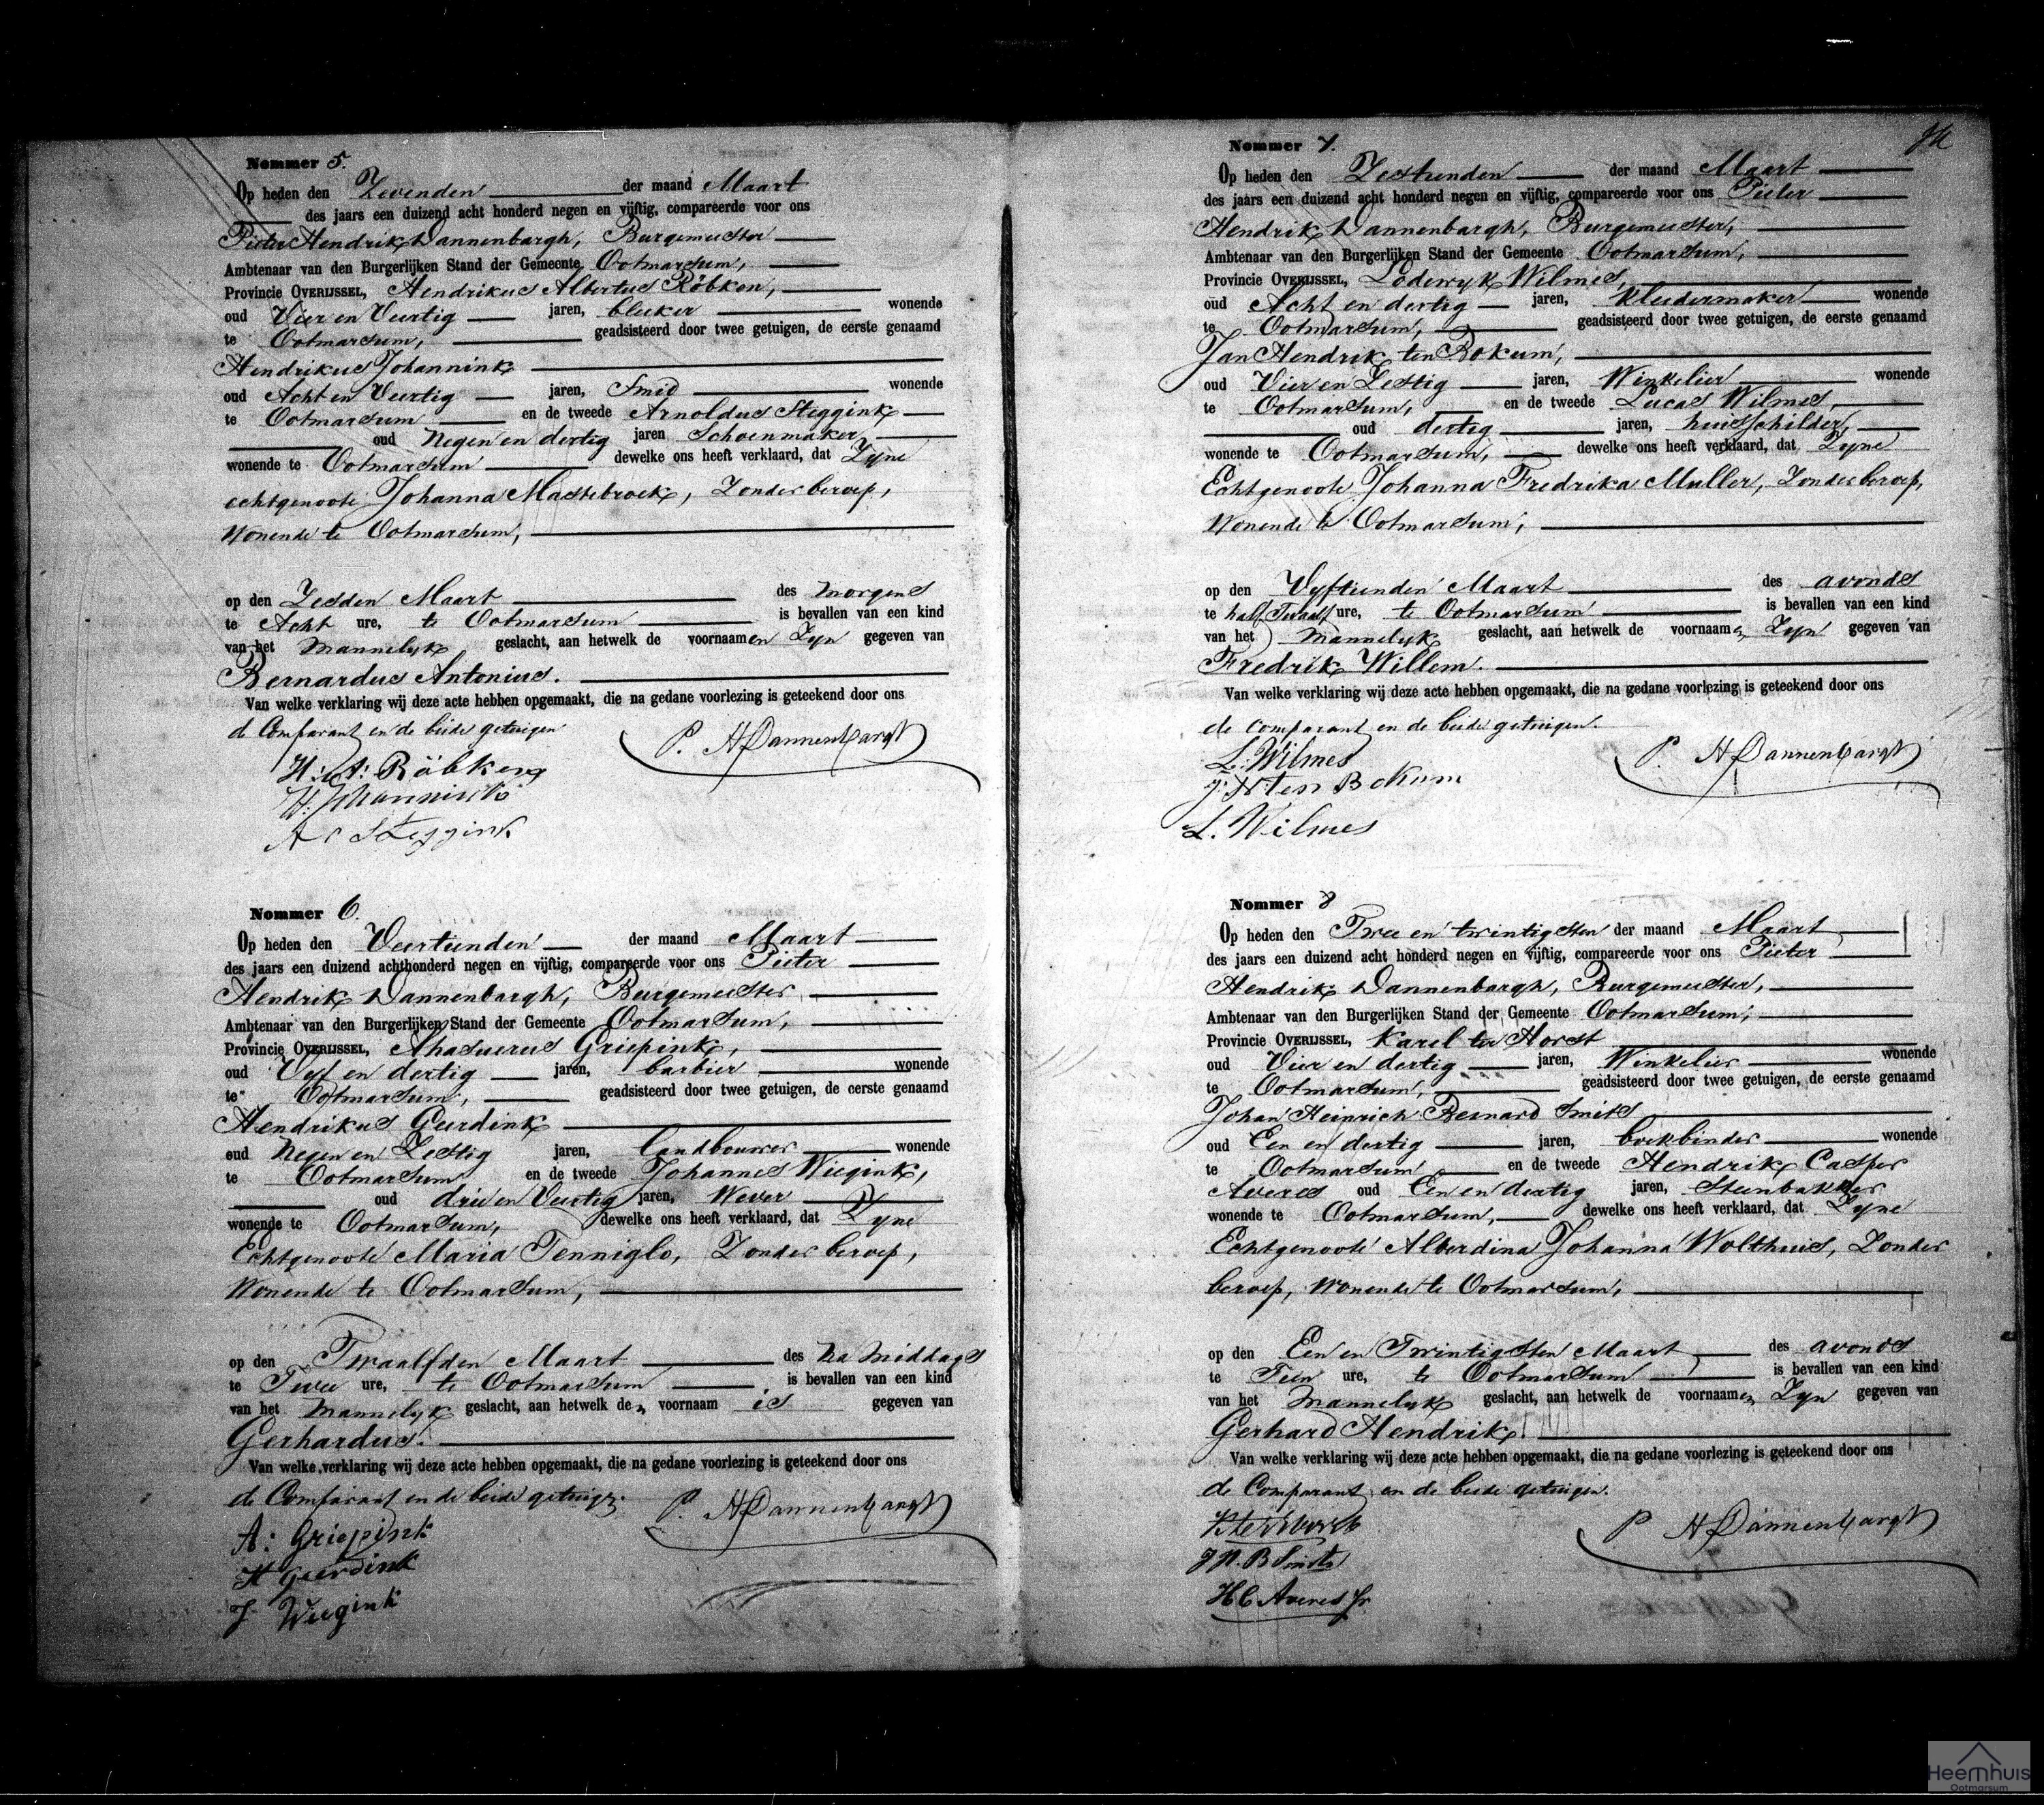 Nommer 5.
Op heden den Zevenden der maand Maart
des jaars een duizend acht honderd negen en vijftig, compareerde voor ons
Pieter Hendrik Dannenbargh, Burgemeester
Ambtenaar van den Burgerlijken Stand der Gemeente Ootmarsum,
Provincie OVERIJSSEL, Hendrikus Albertus Röbken,
oud Vier en Veertig jaren, bleeker wonende
te Ootmarsum, geadsisteerd door twee getuigen, de eerste genaamd
Hendrikus Johannink
oud Acht en Veertig jaren, Smid wonende
te Ootmarsum en de tweede Arnoldus Steggink
oud Negen en dertig jaren Schoenmaker
wonende te Ootmarsum dewelke ons heeft verklaard, dat Zyne
echtgenoote Johanna Mastebroek, Zonder beroep,
Wonende te Ootmarsum,
op den Zesden Maart des morgens
te Acht ure, te Ootmarsum is bevallen van een kind
van het Mannelyk geslacht, aan hetwelk de voornaamen Zyn gegeven van
Bernardus Antonius.
Van welke verklaring wij deze acte hebben opgemaakt, die na gedane voorlezing is geteekend door ons
de Comparant en de beide getuigen
P. H Dannenbargh
H: A: Röbken
H. Johannink
Ar Steggink
Nommer 6.
Op heden den Veertienden der maand Maart
des jaars een duizend achthonderd negen en vijftig, compareerde voor ons Pieter
Hendrik Dannenbargh, Burgemeester,
Ambtenaar van den Burgerlijken Stand der Gemeente Ootmarsum,
Provincie OVERIJSSEL, Ahasuerus Griepink,
oud Vyf en dertig jaren, barbier wonende
te Ootmarsum, geadsisteerd door twee getuigen, de eerste genaamd
Hendrikus Geerdink
oud Negen en Zestig jaren, landbouwer wonende
te Ootmarsum en de tweede Johannes Wiegink,
oud drie en Veertig jaren, Wever
wonende te Ootmarsum, dewelke ons heeft verklaard, dat Zyne
Echtgenoote Maria Tenniglo, Zonder beroep,
Wonende te Ootmarsum,
op den Twaalfden Maart des Na Middags
te Twee ure, te Ootmarsum is bevallen van een kind
van het Mannelyk geslacht, aan hetwelk de voornaam is gegeven van
Gerhardus.
Van welke verklaring wij deze acte hebben opgemaakt, die na gedane voorlezing is geteekend door ons
de Comparant en de beide getuig.
P. H Dannenbargh
A: Griepink
H Geerdink
J Wiegink
Nommer 7.
Op heden den Zestienden der maand Maart
des jaars een duizend acht honderd negen en vijftig, compareerde voor ons Pieter
Hendrik Dannenbargh, Burgemeester,
Ambtenaar van den Burgerlijken Stand der Gemeente Ootmarsum,
Provincie OVERIJSSEL, Lodewyk Wilmes,
oud Acht en dertig jaren, kleedermaker wonende
te Ootmarsum, geadsisteerd door twee getuigen, de eerste genaamd
Jan Hendrik ten Bokum,
oud Vier en Zestig jaren, Winkelier wonende
te Ootmarsum, en de tweede Lucas Wilmes,
oud dertig jaren, huisschilder,
wonende te Ootmarsum, dewelke ons heeft verklaard, dat Zyne
Echtgenoote Johanna Fredrika Muller, Zonder beroep,
Wonende te Ootmarsum,
op den Vyftienden Maart des avonds
te half Twaalf ure, te Ootmarsum is bevallen van een kind
van het Mannelyk geslacht, aan hetwelk de voornaamen Zyn gegeven van
Fredrik Willem.
Van welke verklaring wij deze acte hebben opgemaakt, die na gedane voorlezing is geteekend door ons
de Comparant en de beide getuigen.
P. H Dannenbargh
L. Wilmes
J. H ten Bokum
L. Wilmes
Nommer 8
Op heden den Twee en twintigsten der maand Maart
des jaars een duizend acht honderd negen en vijftig, compareerde voor ons Pieter
Hendrik Dannenbargh, Burgemeester,
Ambtenaar van den Burgerlijken Stand der Gemeente Ootmarsum,
Provincie OVERIJSSEL, Karel ter Horst
oud Vier en dertig jaren, Winkelier wonende
te Ootmarsum, geadsisteerd door twee getuigen, de eerste genaamd
Johan Heinrich Bernard Smits
oud Een en dertig jaren, boekbinder wonende
te Ootmarsum en de tweede Hendrik Casper
Averes oud Een en dertig jaren, Steenbakker
wonende te Ootmarsum, dewelke ons heeft verklaard, dat Zyne
Echtgenoote Alberdina Johanna Wolthuis, Zonder
beroep, Wonende te Ootmarsum,
op den Een en Twintigsten Maart, des avonds
te Tien ure, te Ootmarsum is bevallen van een kind
van het Mannelyk geslacht, aan hetwelk de voornaamen Zyn gegeven van
Gerhard Hendrik.
Van welke verklaring wij deze acte hebben opgemaakt, die na gedane voorlezing is geteekend door ons
de Comparant en de beide getuigen.
P H Dannenbargh
K ter Horst
J H. B Smits
H C Averes Jr
Heemhuis
Ootmarsum